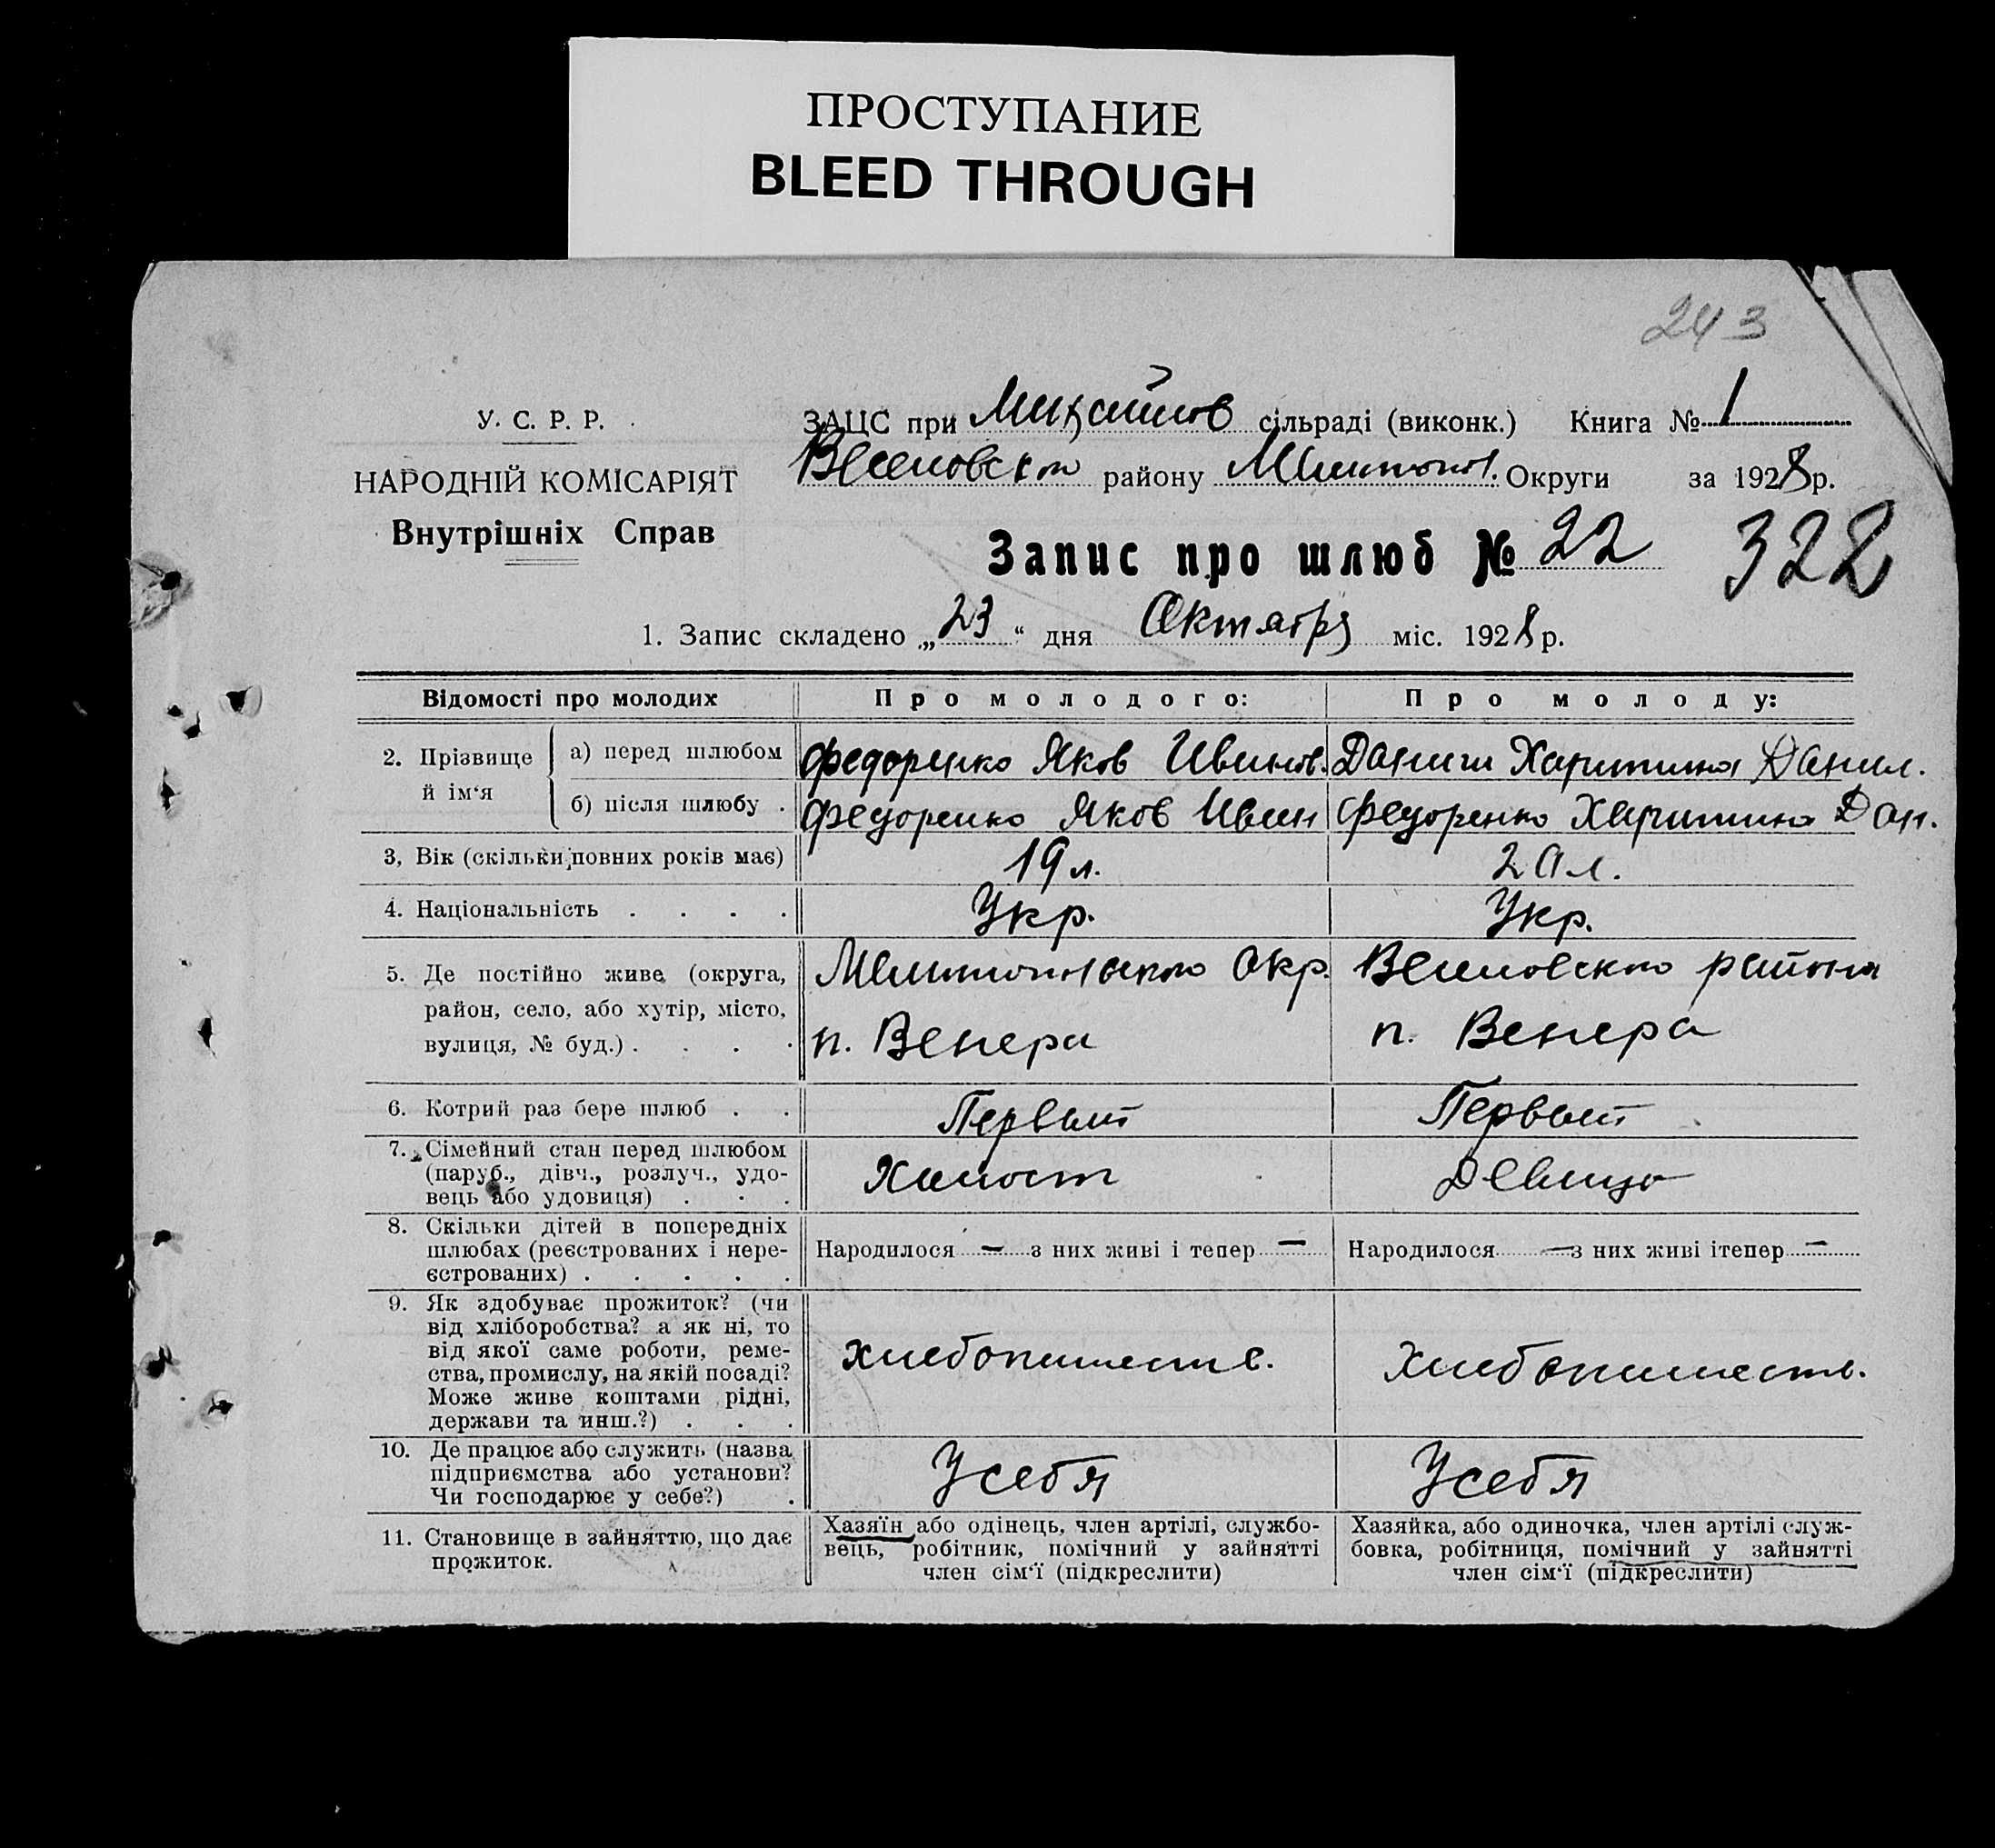 ПРОСТУПАНИЕ
BLEED THROUGH
243
У. С. Р. Р.
НАРОДНІЙ КОМІСАРІЯТ
Внутрішніх Справ
ЗАЦС при Михайлов сільраді (виконк.) Книга № 1
Веселовского району Мелитопол. Округи за 1928 р.
Запис про шлюб № 22 322
1. Запис складено „23“ дня Октября міс. 1928 р.
Відомості про молодих Про молодого: Про молоду:
2. Прізвище й ім‘я
а) перед шлюбом Федоренко Яков Иванов. Харитина Данил.
б) після шлюбу . Федоренко Яков Иван Федоренко Харитина Дан.
3, Вік (скільки повних років має) 19 л. 20 л.
4. Національність . . . . Укр. Укр.
5. Де постійно живе (округа,
район, село, або хутір, місто,
вулиця, № буд.) . . . .
Мелитопольского Окр. Веселовского района
п. Венера п. Венера
6. Котрий раз бере шлюб . . Первый Первый
7. Сімейний стан перед шлюбом
(паруб., дівч., розлуч., удо-
вець або удовиця) . . .
Холост Девица
8. Скільки дітей в попередніх
шлюбах (реєстрованих і нере-
єстрованих) . . . . .
Народилося — з них живі і тепер — Народилося — з них живі ітепер —
9. Як здобуває прожиток? (чи
від хліборобства? а як ні, то
від якої саме роботи, реме-
ства, промислу, на якій посаді?
Може живе коштами рідні,
держави та инш.?) . . .
хлебопашеств. Хлебопашеств.
10. Де працює або служить (назва
підприємства або установи?
Чи господарює у себе?) .
У себя У себя
11. Становище в зайняттю, що дає
прожиток.
Хазяїн або одінець, член артілі, службо-
вець, робітник, помічний у зайнятті
член сім‘ї (підкреслити)
Хазяйка, або одиночка, член артілі служ-
бовка, робітниця, помічний у зайнятті
член сім‘ї (підкреслити)